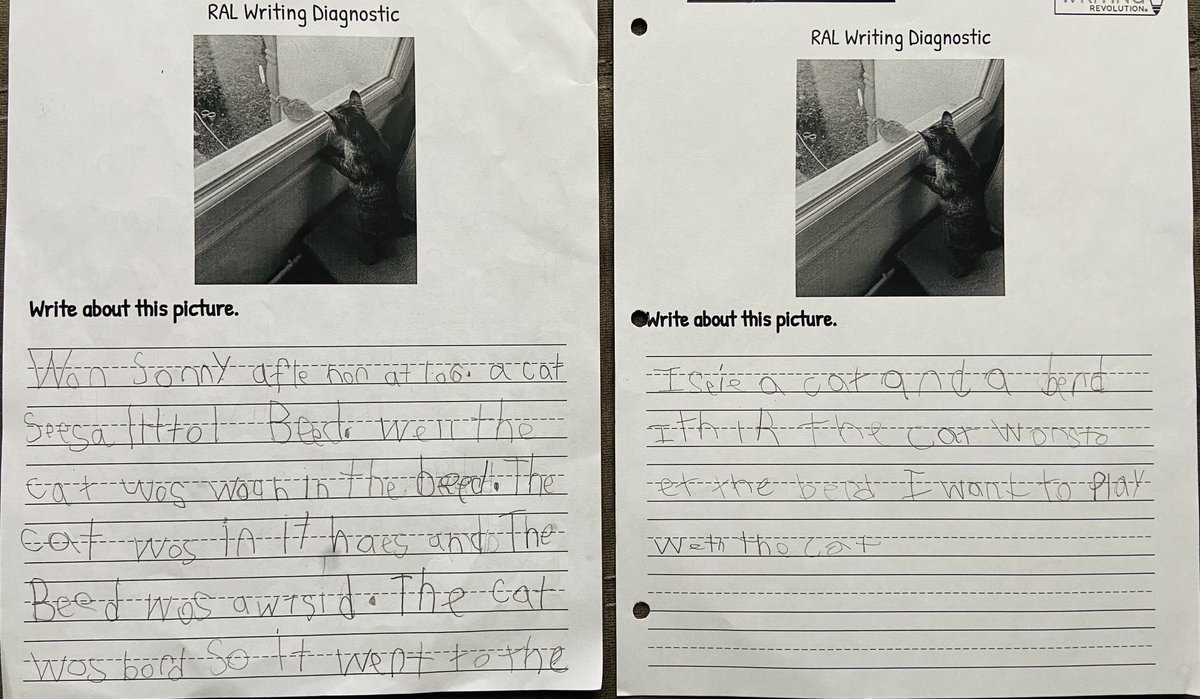 RAL Writing Diagnostic
Write about this picture.
Won Sonny afte non at too. a cat
Seesa littol Beed. wen the
cat was woch in the beed. The
cat wos in it haes and The
Beed wos awtsid. The cat
wos bord So it went to the
REVOLUTION
RAL Writing Diagnostic
Write about this picture.
I seie a cat and a berd
I thik the cat wonsto
et the berd I want to play
with the cat